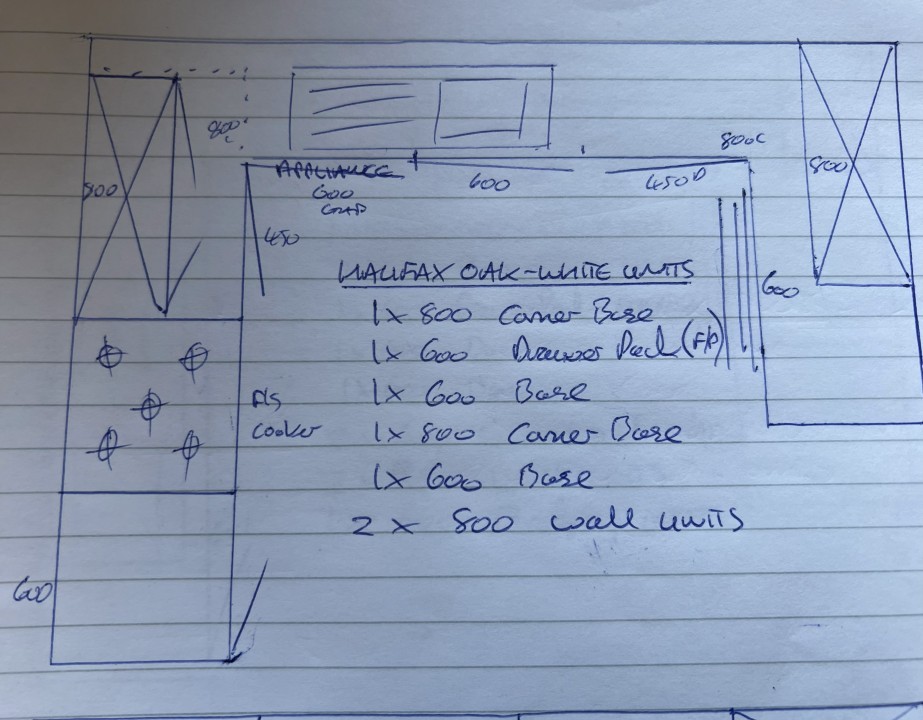 800
800
L
APPLIANCE
600
600
450D
800C
800
450
600
HALIFAX OAK-WHITE UNITS
1x 800 Corner Base
1x 600 Drawer Pack (F/P)
1x 600 Base
P/S
cooker
1x 800 Corner Base
1x 600 Base
2 x 800 wall units
600